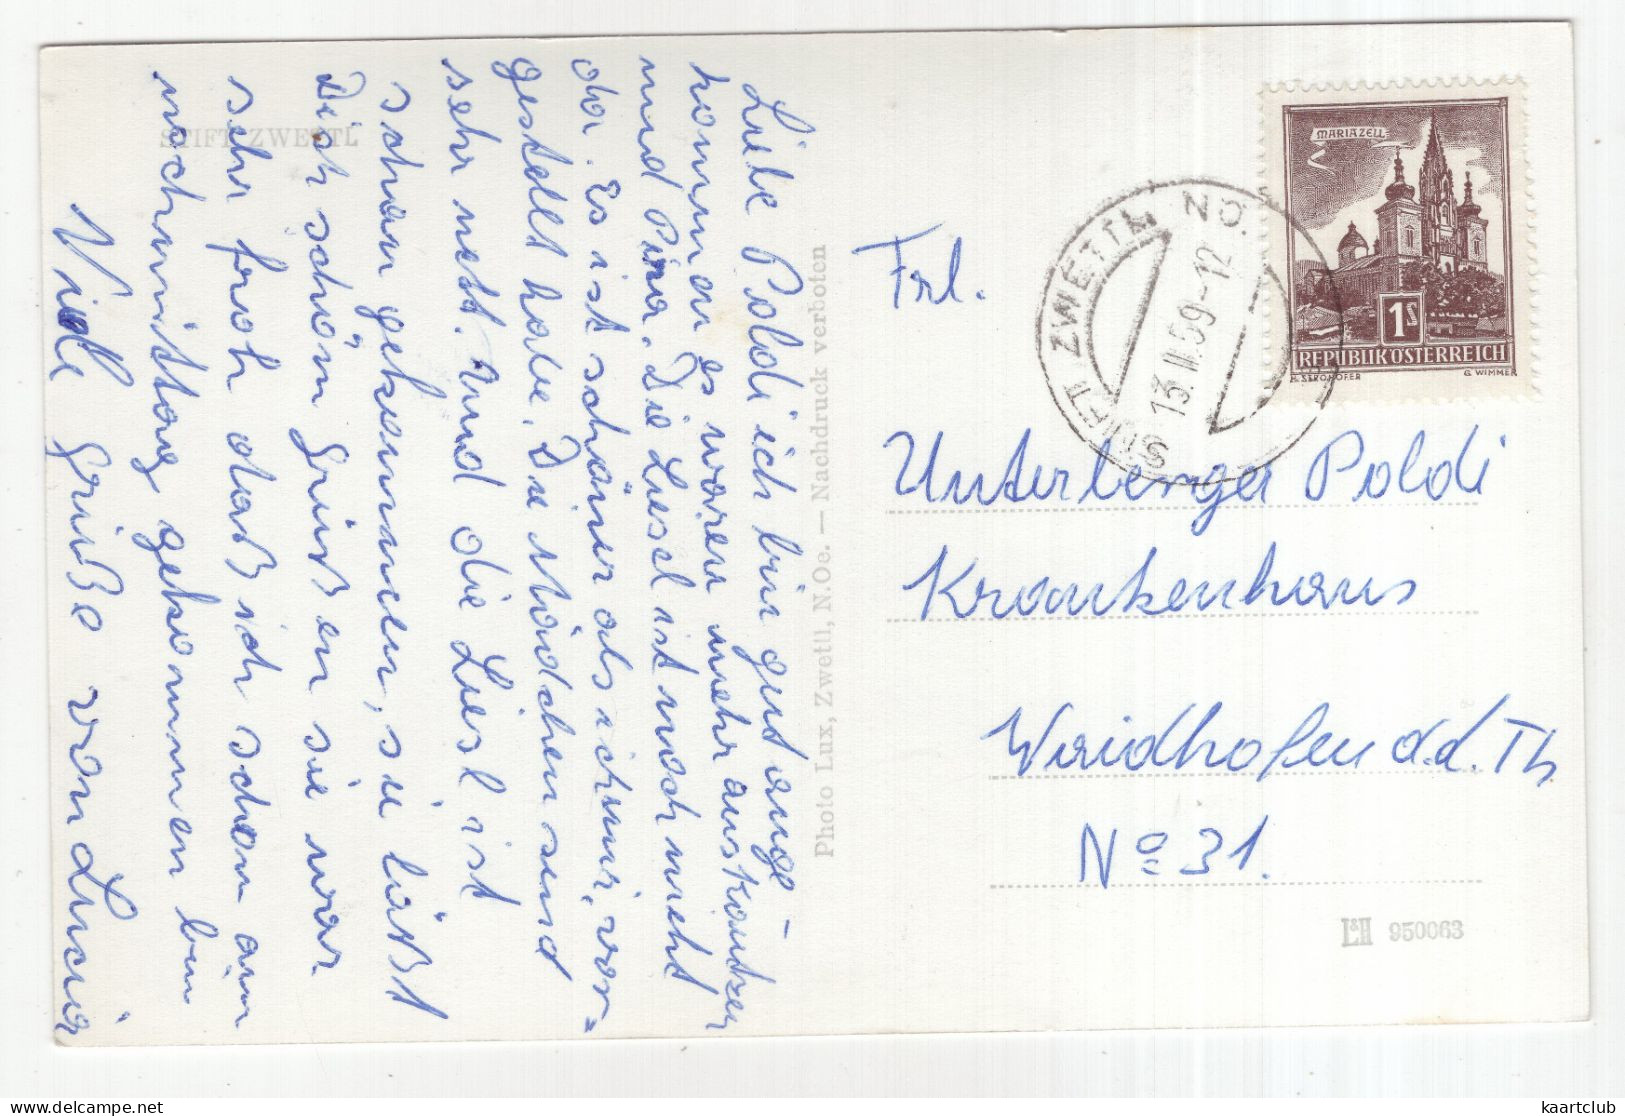 STIFT ZWETTL
Liebe Poldi ich bin gut ange-
kommen es waren mehr aus
und Pina. Die Liesel ist noch nicht
da. Es ist schöner als ich mir, vor=
gestellt habe. Die Mädchen sind
sehr nett. Und die Liesl ist
schon gekommen, sie läßt
Dich schön grüßen sie war
sehr froh daß ich schon am
nachmittag gekommen bin
Viele Grüße von Lucia
Photo Lux, Zwettl, N.Oe. — Nachdruck verboten
MARIAZELL
1S
REPUBLIK ÖSTERREICH
G. WIMMER
STIFT ZWETTL, NÖ
13.II.59-12
Frl.
Unterberger Poldi
Krankenhaus
Waidhofen a.d. Th.
No 31.
L&H 950063
kaartclub